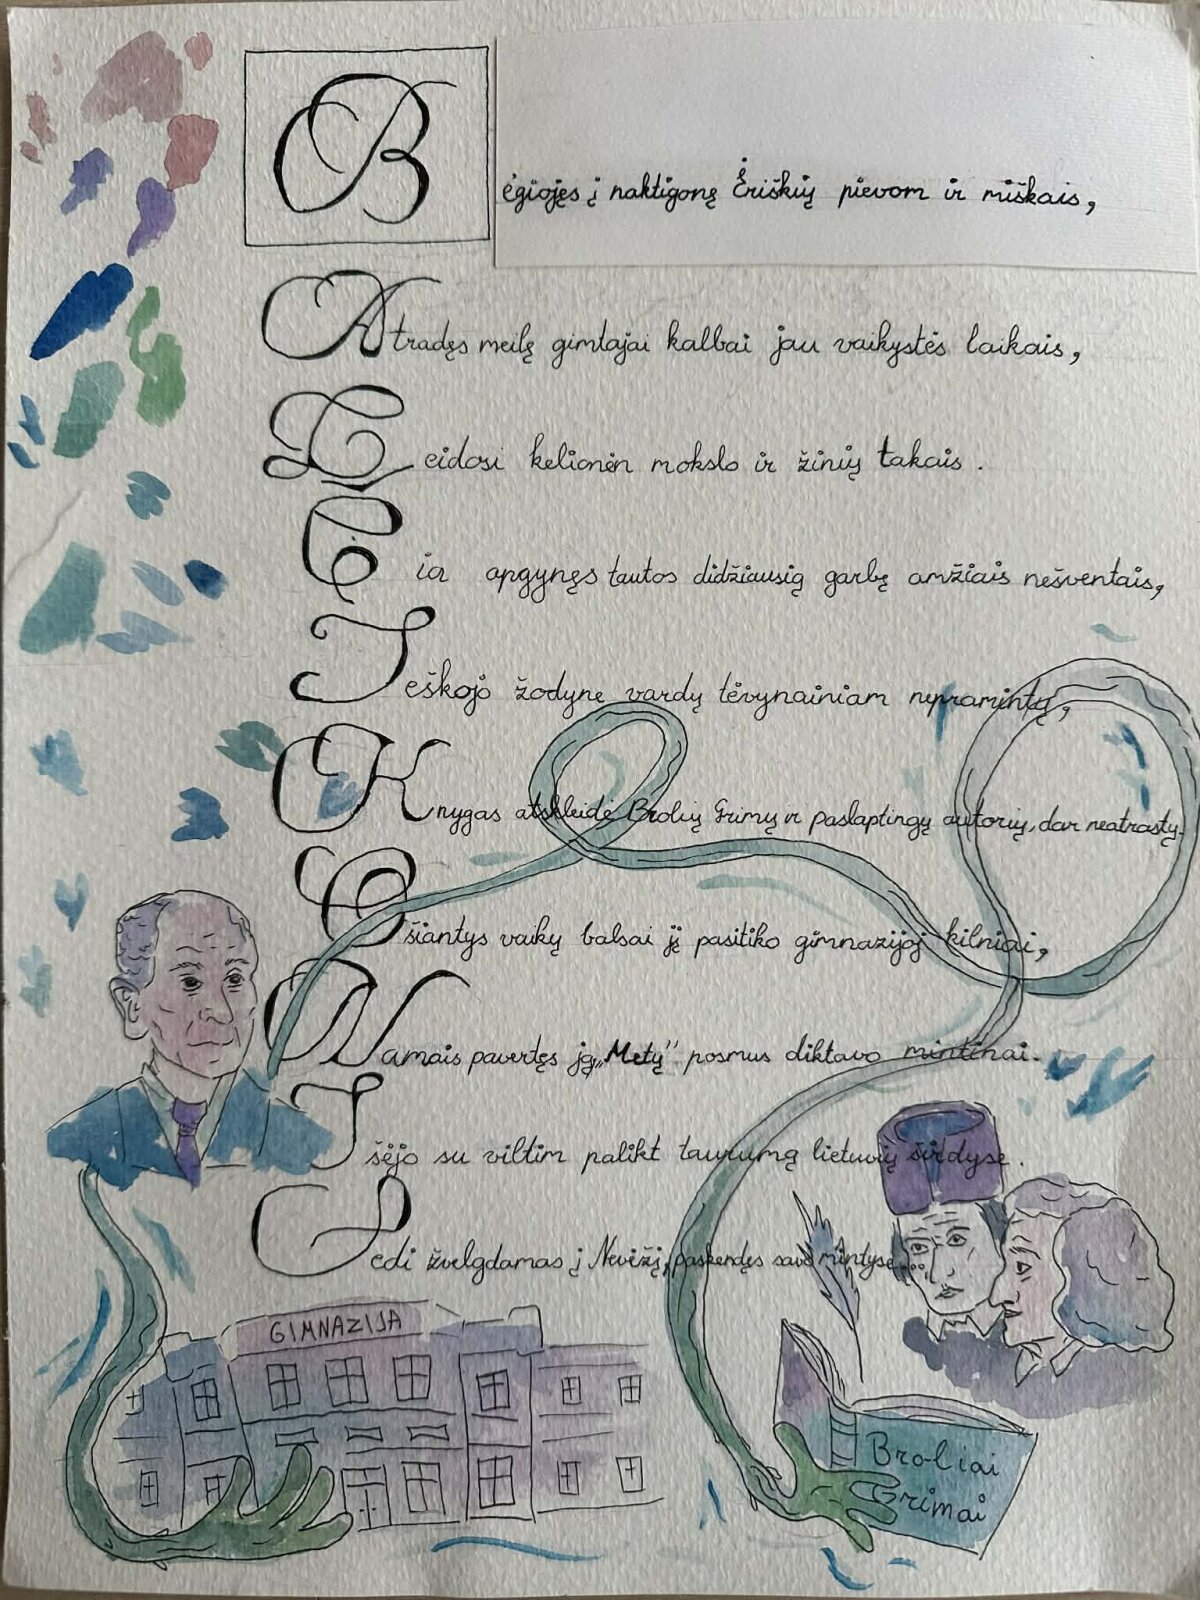 Bėgiojęs į naktigonę Ėriškių pievom ir miškais,
Atradęs meilę gimtajai kalbai jau vaikystės laikais,
Leidosi kelionėn mokslo ir žinių takais.
Čia apgynęs tautos didžiausią garbę amžiais nešventais,
Ieškojo žodyne vardų tėvynainiam nepramintų,
Knygas atskleidė Brolių Grimų ir paslaptingų autorių, dar neatrastų.
Ošiantys vaikų balsai jį pasitiko gimnazijoj kilniai,
Namais pavertęs ją, „Metų“ posmus diktavo mintinai.
Išėjo su viltim palikt taurumą lietuvių širdyse.
Sėdi žvelgdamas į Nevėžį, paskendęs savo mintyse...
GIMNAZIJA
Broliai
Grimai